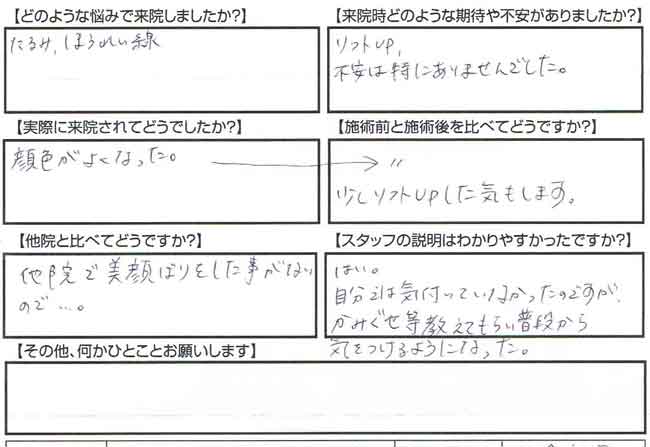 【どのような悩みで来院しましたか?】
たるみ,ほうれい線
【来院時どのような期待や不安がありましたか?】
リフトup,
不安は特にありませんでした。
【実際に来院されてどうでしたか?】
顔色がよくなった。
【施術前と施術後を比べてどうですか?】
〃
少しリフトupした気もします。
【他院と比べてどうですか?】
他院で美顔ばりをした事がない
ので…。
【スタッフの説明はわかりやすかったですか?】
はい。
自分では気付っていなかったのですが、
かみぐせ等教えてもらい普段から
気をつけるようになった。
【その他、何かひとことお願いします】